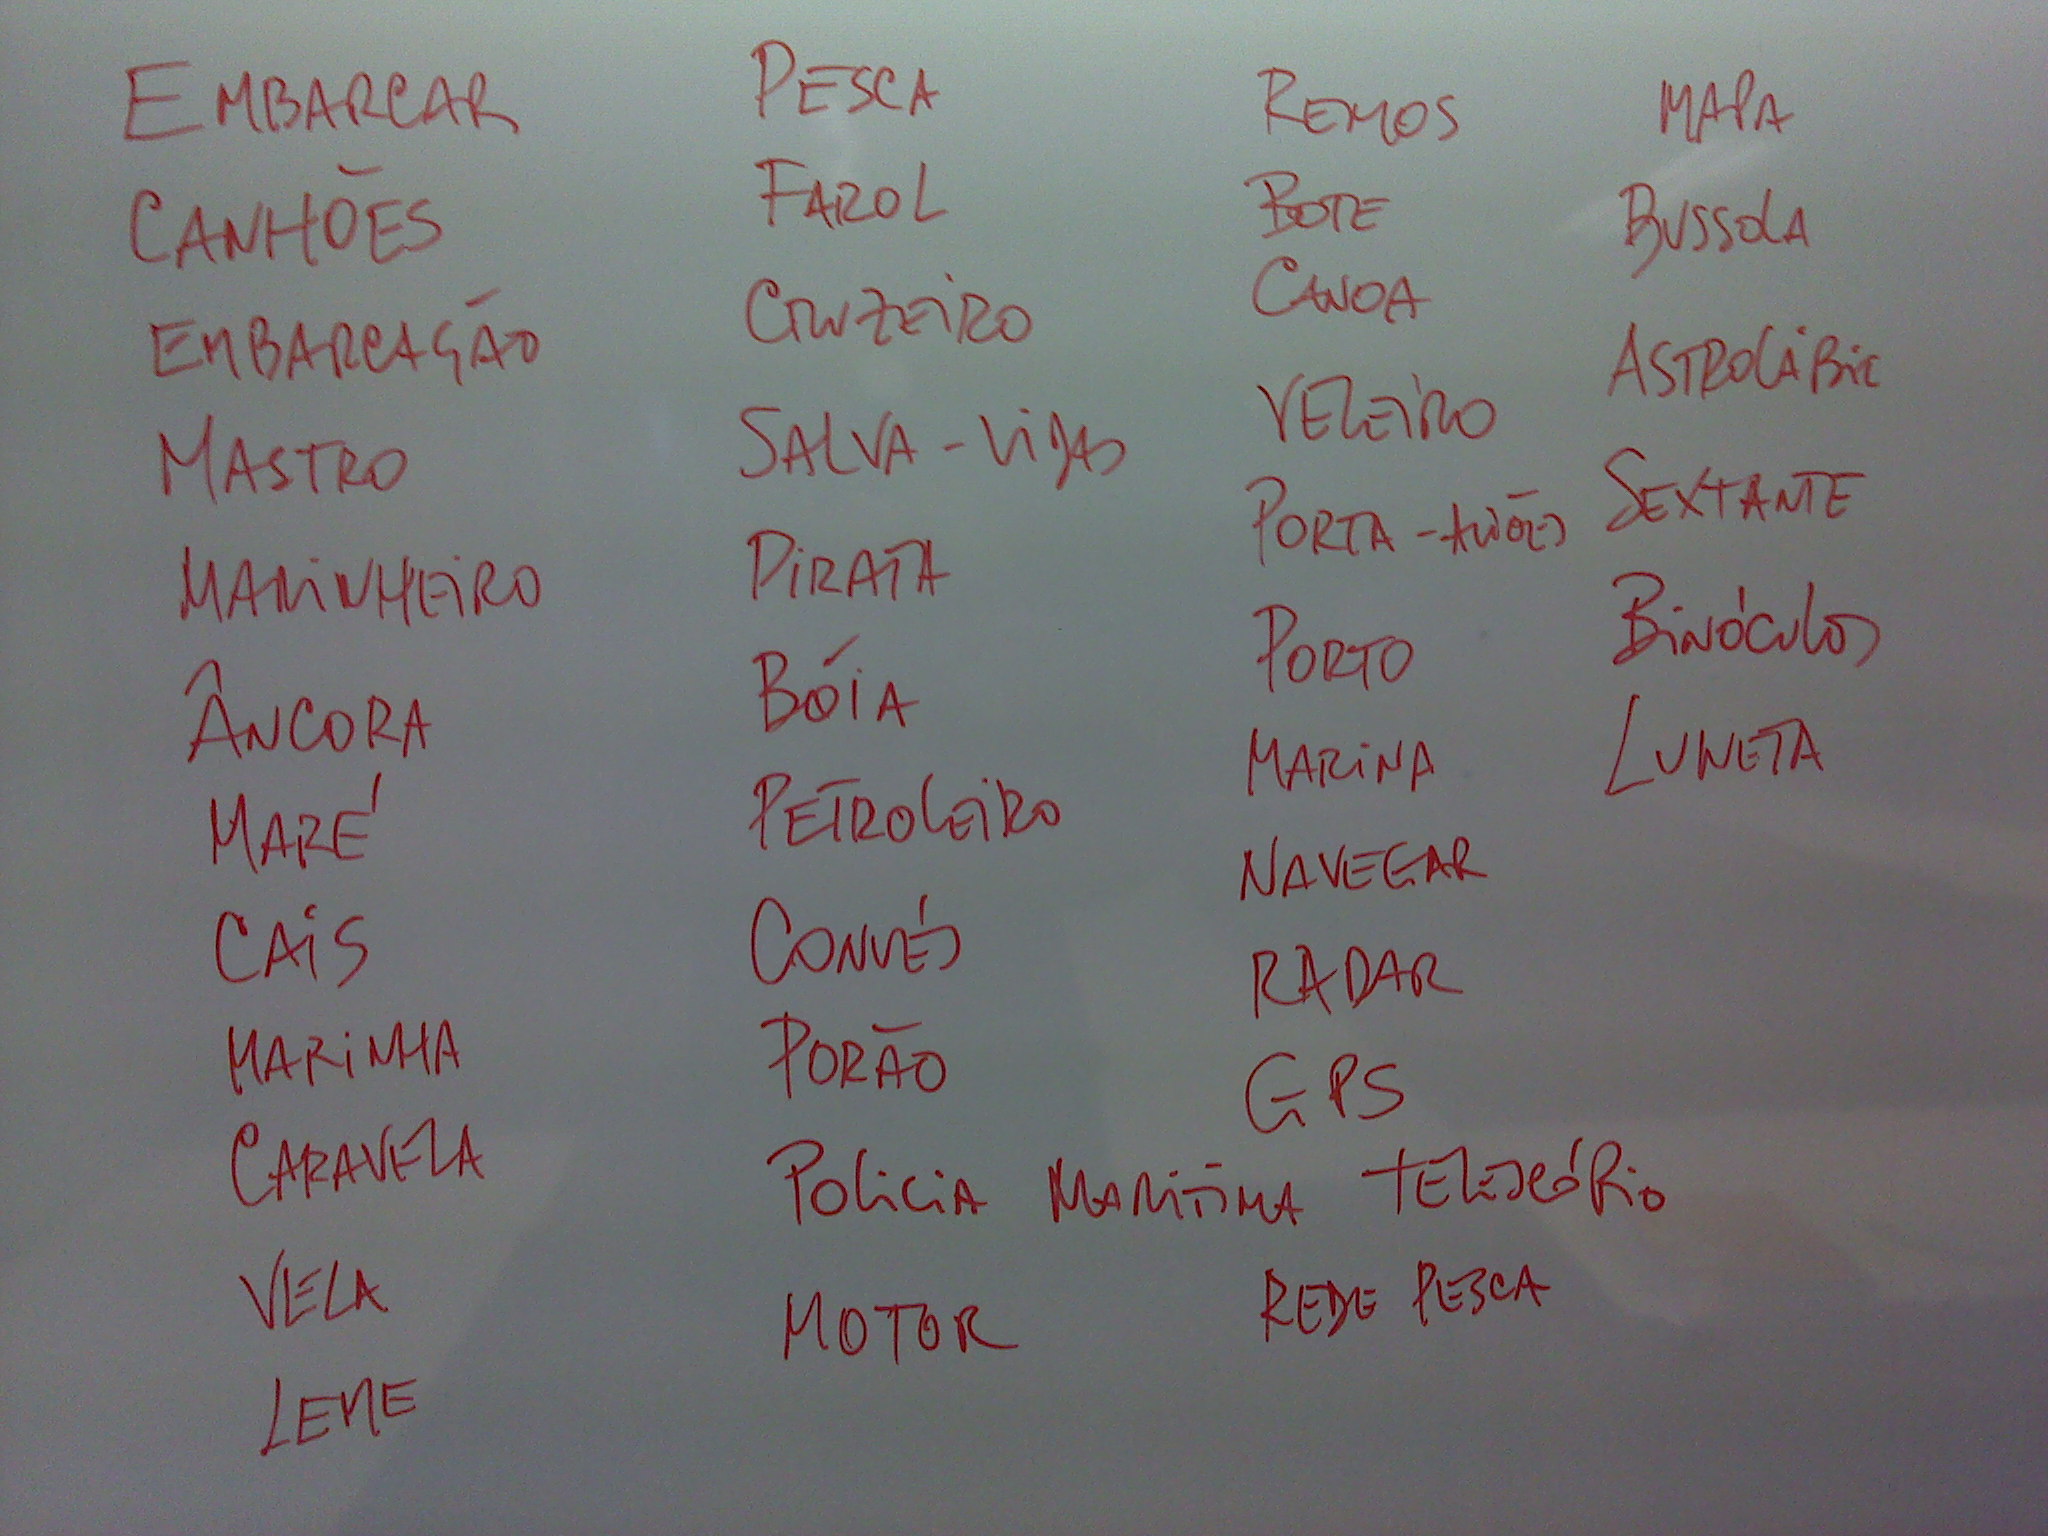 EMBARCAR
CANHÕES
EMBARCAÇÃO
MASTRO
MARINHEIRO
ÂNCORA
MARÉ
CAIS
MARINHA
CARAVELA
VELA
LEME
PESCA
FAROL
CRUZEIRO
SALVA-VIDAS
PIRATA
BÓIA
PETROLEIRO
CONVÉS
PORÃO
POLICIA MARITIMA
MOTOR
REMOS
BOTE
CANOA
VELEIRO
PORTA-AVIÕES
PORTO
MARINA
NAVEGAR
RADAR
GPS
TELESCÓPIO
REDE PESCA
MAPA
BUSSOLA
ASTROLÁBIO
SEXTANTE
BINÓCULOS
LUNETA